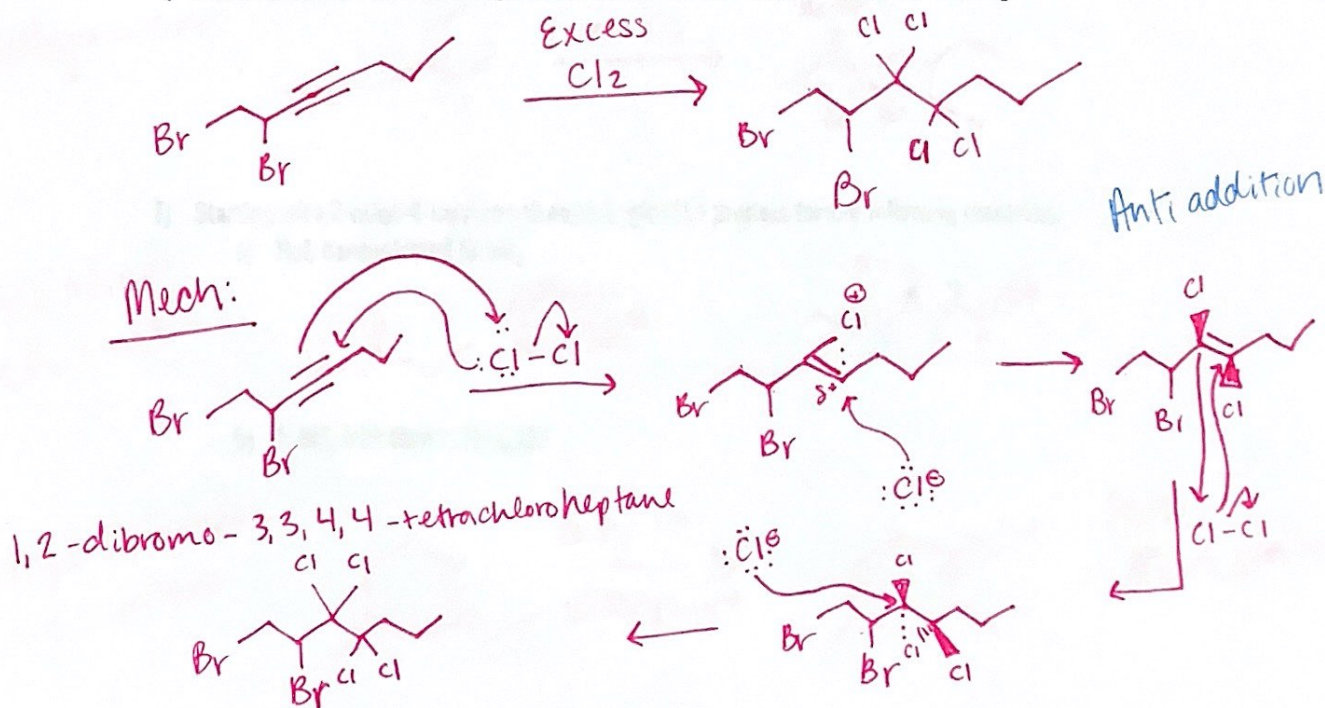 Excess
Cl2
Cl Cl
Br
Br
Br
Br
Cl Cl
Anti addition
Mech:
:Cl-Cl
Br
Br
⊕
Cl
δ+
Br
Br
:Cl⊖
Cl
Br
Br
Cl
Cl-Cl
1,2-dibromo-3,3,4,4-tetrachloroheptane
Cl Cl
Br
Br Cl Cl
:Cl⊖
Cl
Br
Br
Cl
Cl